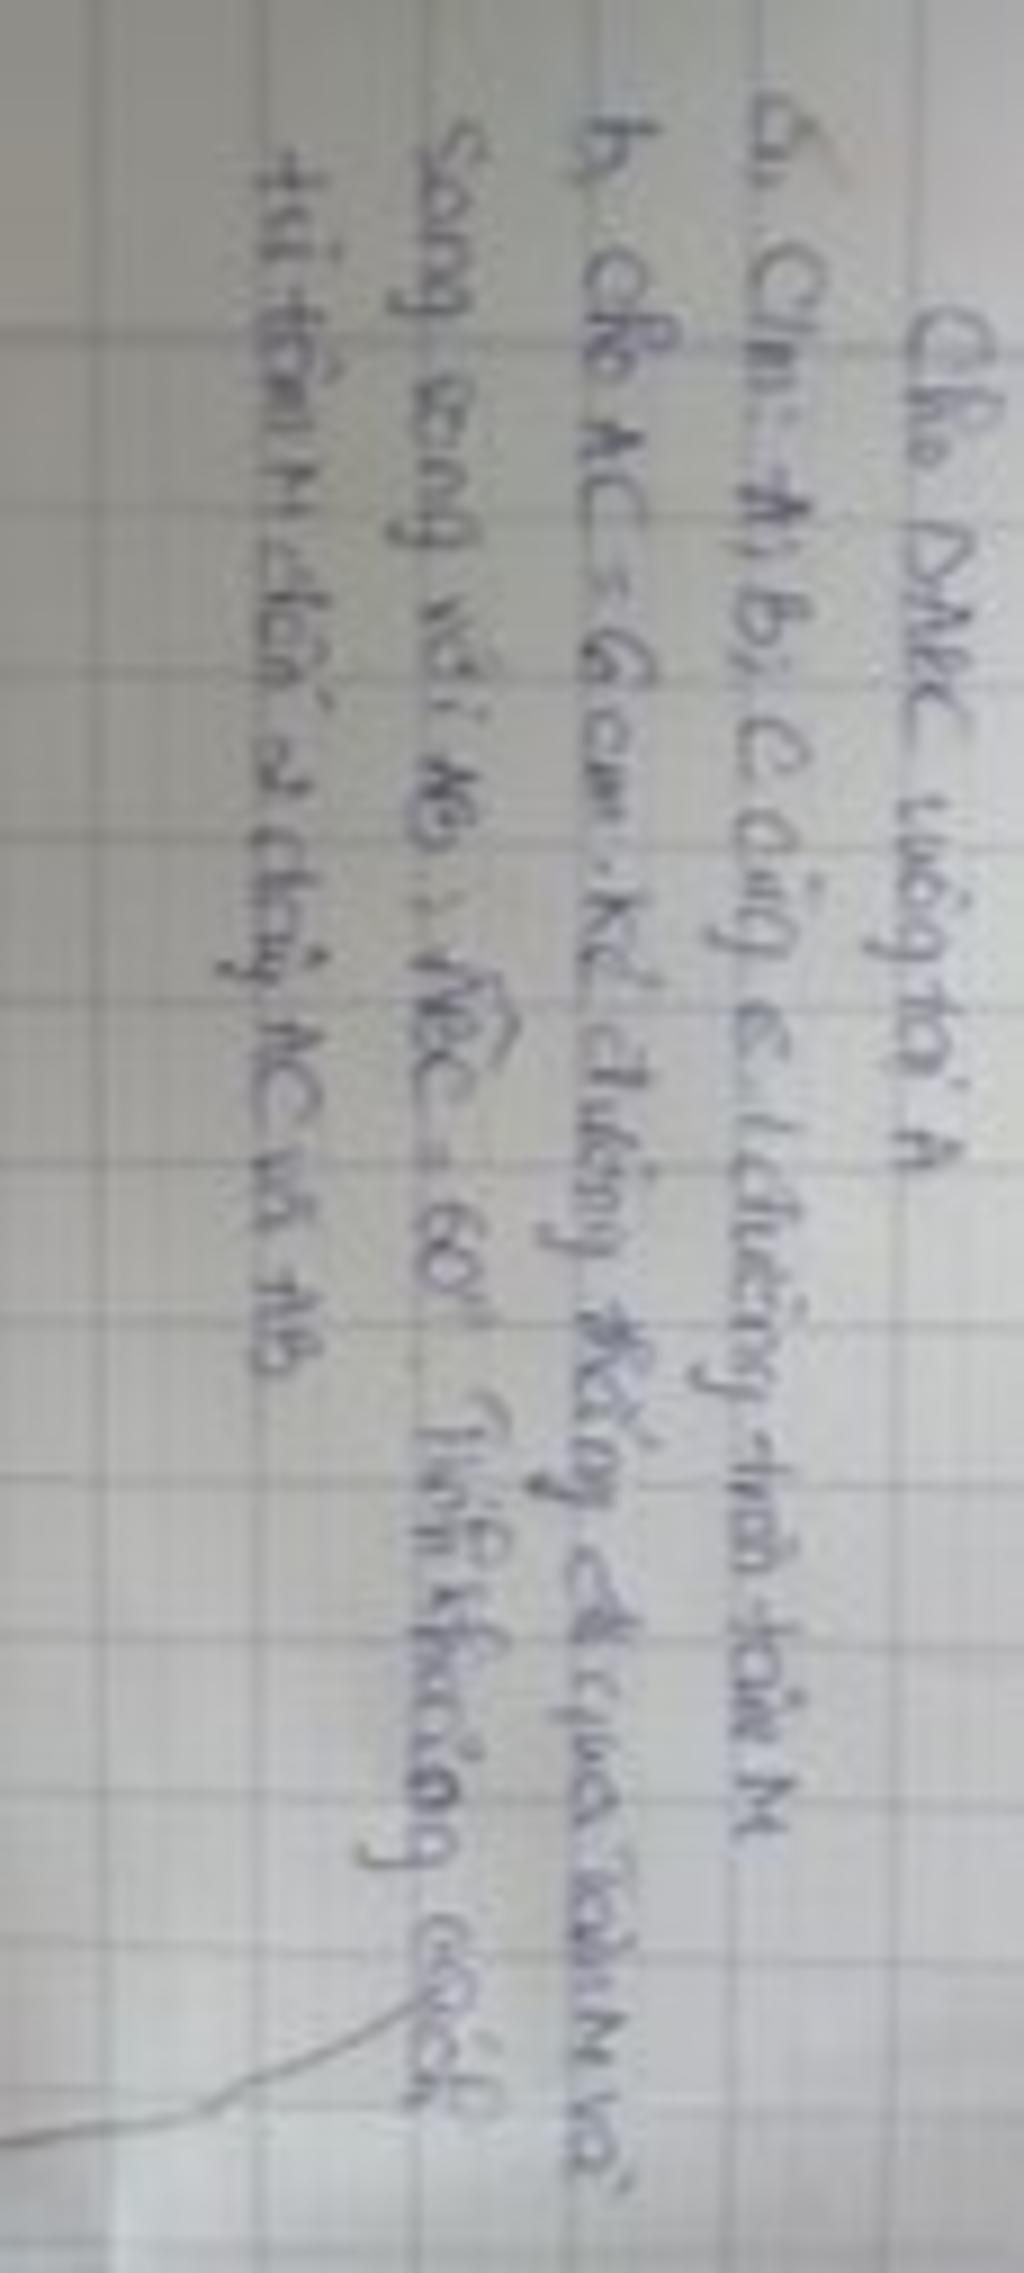 Cho ΔABC vuông tại A
a, Cm: A; B; C cùng ∈ 1 đường tròn tâm M
b, cho AC = 6cm. Kẻ đường thẳng d qua tâm M và
song song với AB; ABC = 60° Tính khoảng cách
từ tâm M đến 2 dây AC và AB